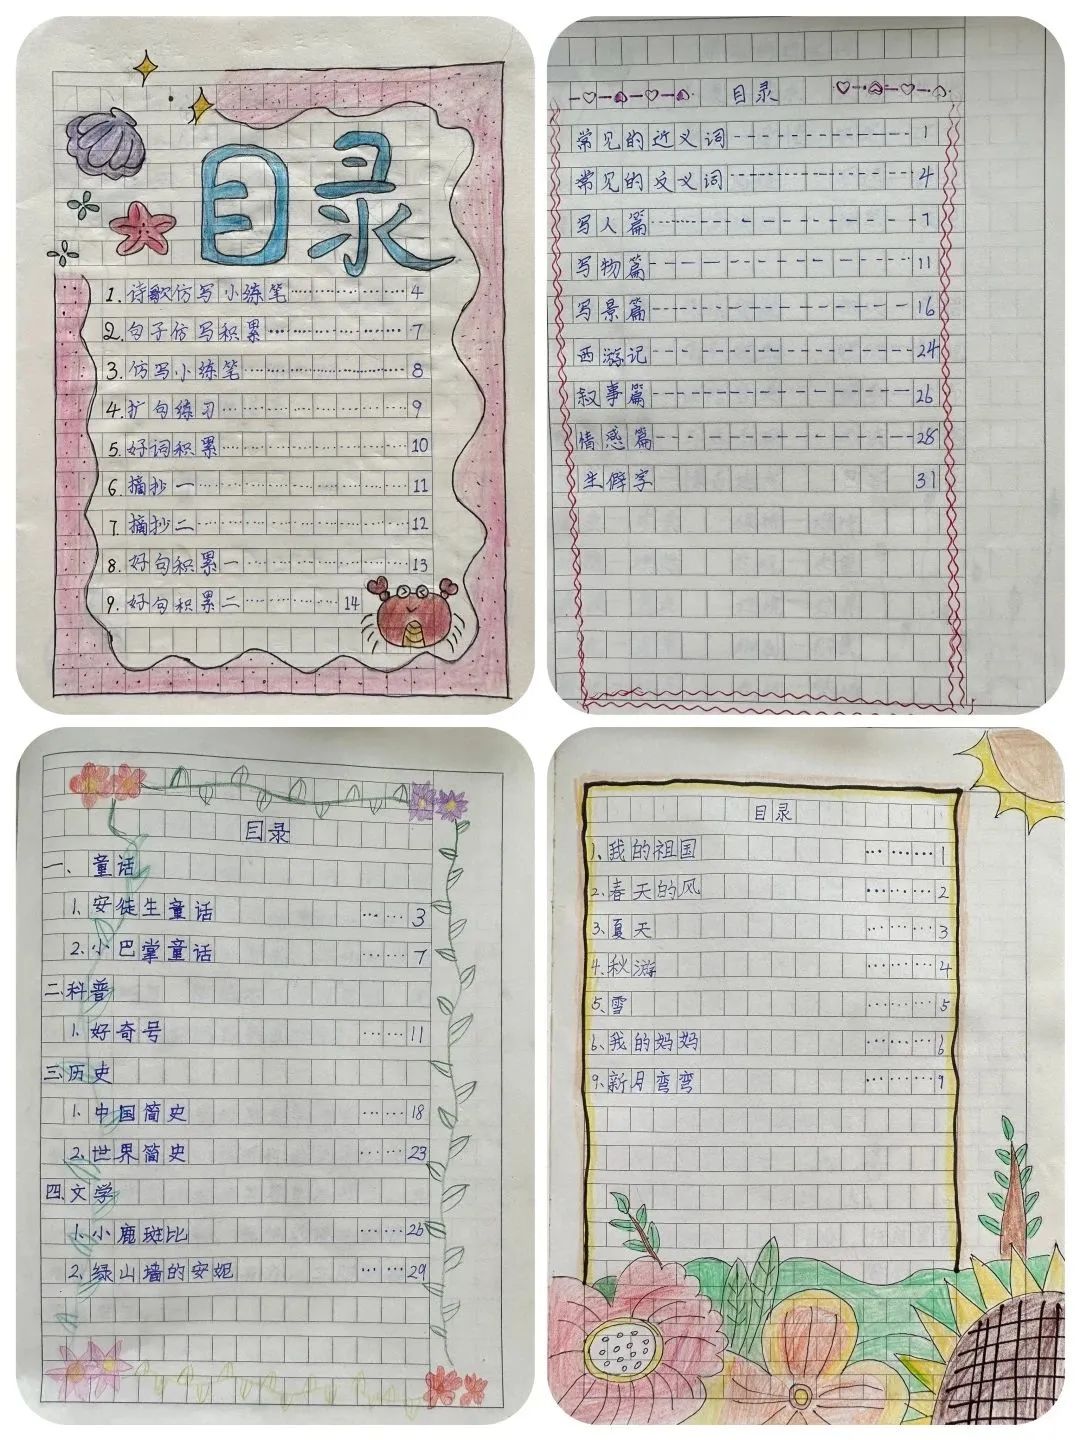 目录
1.诗歌仿写小练笔………………4
2.句子仿写积累………………7
3.仿写小练笔………………8
4.扩句练习………………9
5.好词积累………………10
6.摘抄一………………11
7.摘抄二………………12
8.好句积累一………………13
9.好句积累二………………14
目录
常见的近义词------------1
常见的反义词------------4
写人篇------------7
写物篇------------11
写景篇------------16
西游记------------24
叙事篇------------26
情感篇------------28
生僻字 31
目录
一、童话
1.安徒生童话 ……3
2.小巴掌童话 ……7
二.科普
1.好奇号 ……11
三.历史
1.中国简史 ……18
2.世界简史 ……23
四.文学
1.小鹿斑比 ……26
2.绿山墙的安妮 ……29
目录
1、我的祖国 ………1
2、春天的风 ………2
3、夏天 ………3
4、秋游 ………4
5、雪 ………5
6、我的妈妈 ………6
9、新月弯弯 ………9